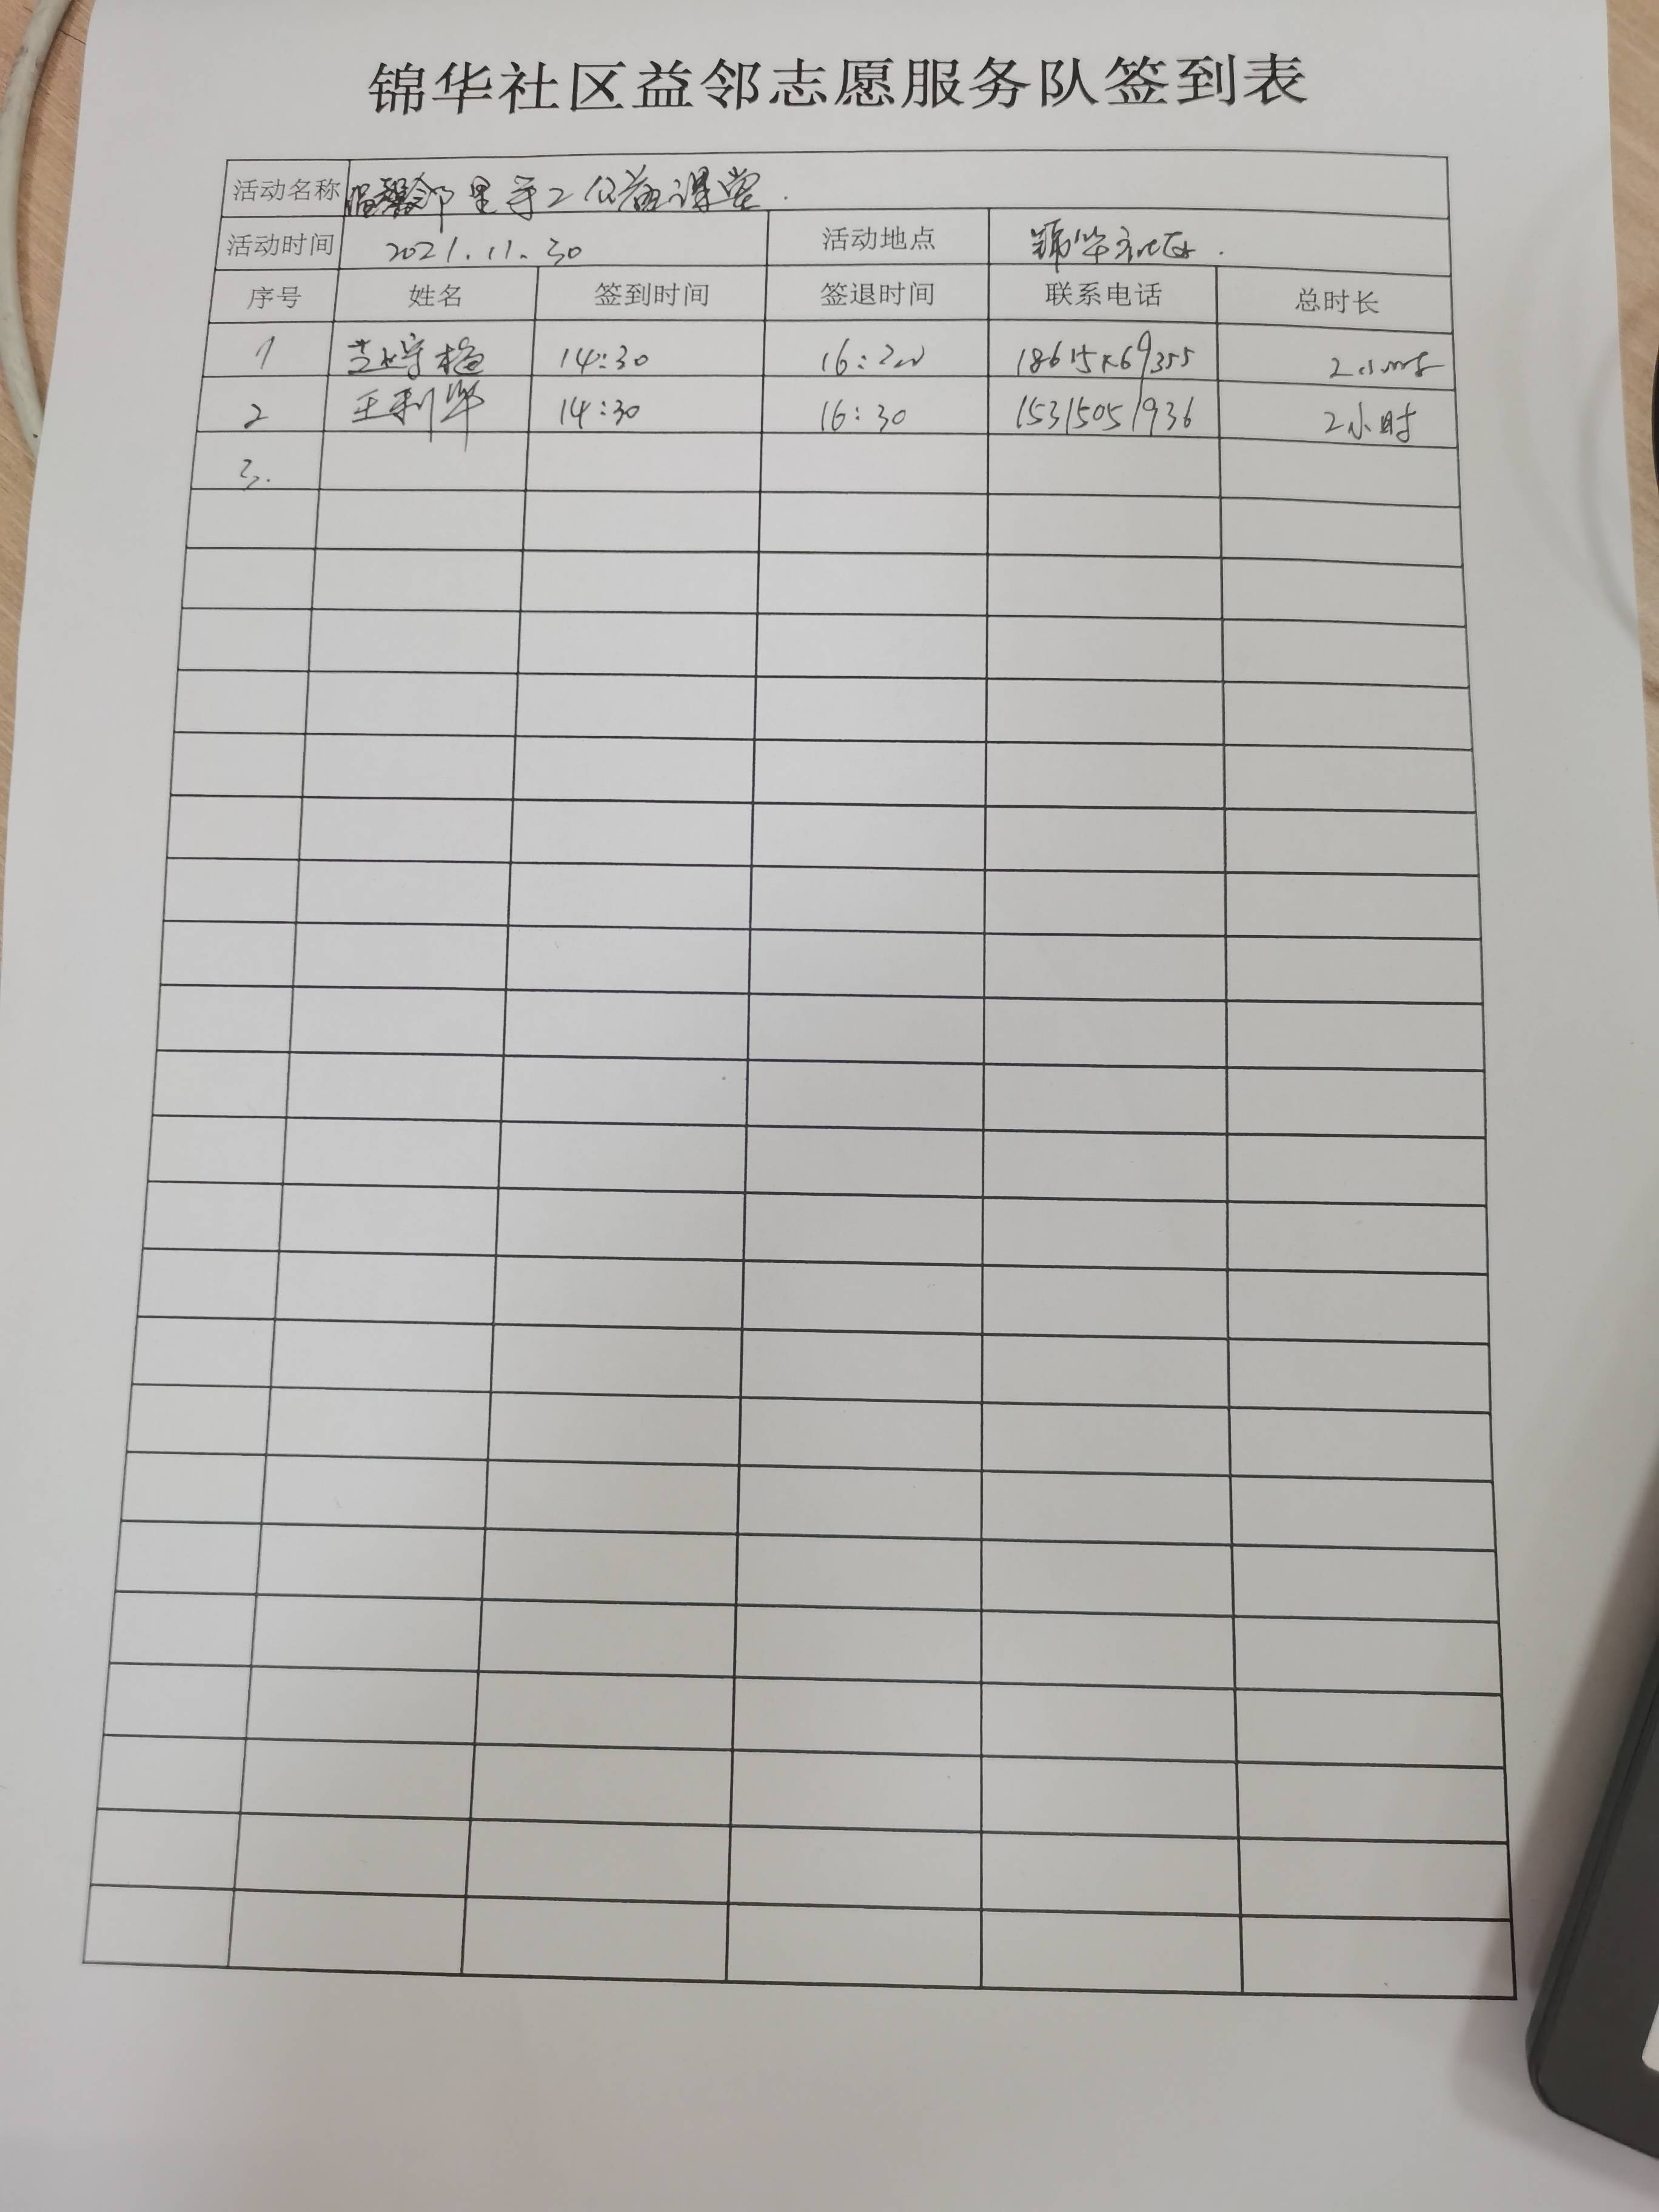 锦华社区益邻志愿服务队签到表
活动名称 温馨邻里手工公益课堂.
活动时间 2021.11.30 活动地点 锦华社区.
序号 姓名 签到时间 签退时间 联系电话 总时长
1 14:30 2小时
2 王利华 14:30 16:30 15315051936 2小时
3.